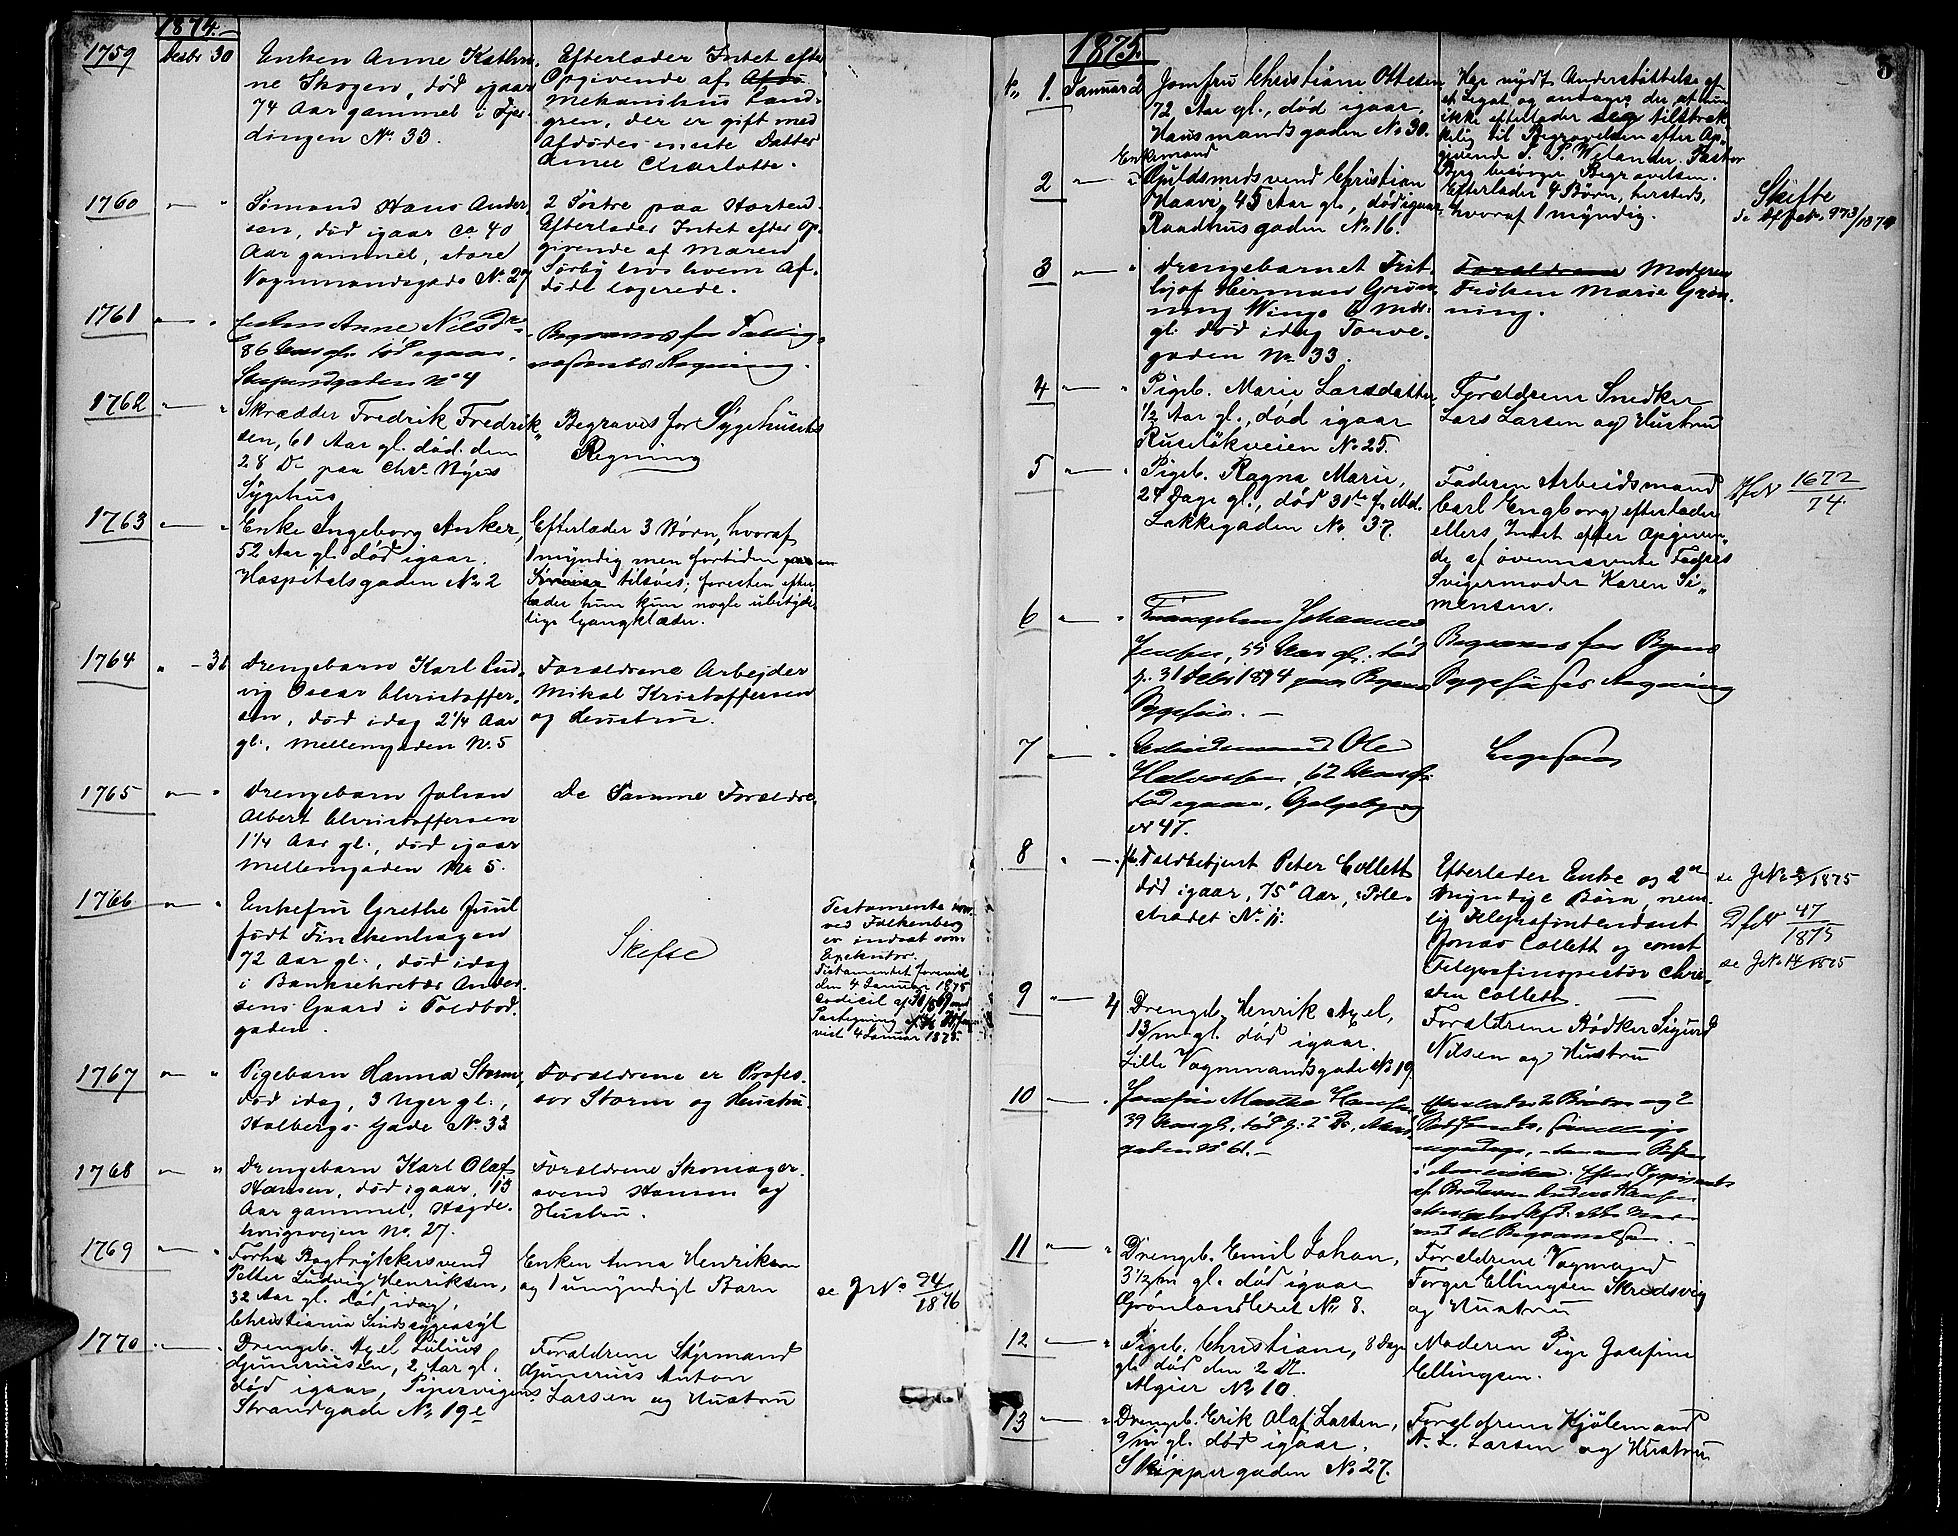 1874.
1759 Decbr 30 Enken Anne Kathri-
ne Skogen, død igaar
74 Aar gammel i Fjer-
dingen No 33.
Efterlader Intet efter
Opgivende af
Mekanikus Land-
gren, der er gift med
Afdødes eneste Datter
Amee Charlotte.
1760 — " Sømand Hans Ander-
sen, død igaar ca 40
Aar gammel, store
Vognmandsgade No 27
2 Søstre paa Horten.
Efterlader Intet efter Op-
givende af Maren
Sørby hos hvem Af-
døde logerede.
1761 — " Enken Anne Nilsdr
86 Aar gl. død igaar,
No 4
Begraves for Fattig-
væsenets Regning.
1762 — " Skrædder Fredrik Fredrik-
sen, 61 Aar gl. død den
28 Ds paa Chra Byes
Sygehus
Begraves for Sygehusets
Regning
1763 — " Enke Ingeborg Anker,
52 Aar gl. død igaar.
Hospitalsgaden No 2
Efterlader 3 Børn, hvoraf
1 myndig men fortiden paa en
tilsøes; foresten efter-
lader hun kun nogle ubetyde-
lige Gangklæder.
1764 " - 31 Drengebarn Karl Lud-
vig Oscar Christoffer-
sen, død idag 2 1/4 Aar
gl., Mellemgaden No. 5
Forældrene Arbejder
Mikal Kristoffersen
og Hustru.
1765 — " Drengebarn Johan
Albert Christoffersen
1 1/4 Aar gl., død igaar
Mellemgaden No 5.
De Samme Forældre.
1766 — " Enkefru Grethe Juul
født Finckenhagen
72 Aar gl., død idag
i Banksekretær Ander-
sens Gaard i Toldbod-
gaden.
Skifte
Testamente
ved Falkenberg
er indsat som
Expekutor.
Testamentet forevist
den 4 Januar 1875
Codicil af
Paategning
vist 4 Januar 1875.
1767 — " Pigebarn Hanna Storm,
død idag, 3 Uger gl.,
Holbergs Gade No. 33
Forældrene er Profes-
sor Storm og Hustru.
1768 — " Drengebarn Karl Olaf
Hansen, død igaar, 13
Aar gammel, Hegde-
haugsvejen No. 27.
Forældrene Skomager-
svend Hansen og
Hustru.
1769 — " Forhv Bogtrykkersvend
Petter Ludvig Henriksen,
32 Aar gl. død idag,
Christiania Sindssygeasyl
Enken Anna Henriksen
og 1 umyndigt Barn
se JNo 94/1876
1770 — " Drengeb. Axel Julius
Gunerius­sen, 2 Aar gl.
død igaar, Pipervigens
Strandgade No 19e
Forældrene Styrmand
Gunerius Anton
Larsen og Hustru
1875. 5
1. Januar 2 Jomfru Christiane Ottesen
72 Aar gl., død igaar
Hausmandsgaden No 30.
Har nydt Understøttelse af
et Legat og antages der at hun
ikke efterlader sig tilstræk-
kelig til Begravelsen efter Op-
givende S. P. Welander. Pastor
Byg besørger Begravelsen.
2 — " Enkemand
Guldsmedsvend Christian
Haave, 45 Aar gl., død igaar,
Raadhusgaden No 16.
Efterlader 4 Børn, hersteds,
hvoraf 1 myndig.
Skifte
se 973/1874
3 — " Drengebarnet Frit-
hjof Herman Grøn-
ning Winge 6 Mdr.
gl. død idag Torve-
gaden No. 33.
Forældrene Moderen
Frøken Marie Grøn-
ning.
4 — " Pigeb. Marie Larsdatter,
1/2 Aar gl., død igaar
Ruseløkveien No 25.
Forældrene Snedker
Lars Larsen og Hustru
5 — " Pigeb. Ragna Marie,
24 Dage gl., død 31te f. Md.
Lakkegaden No. 37.
Faderen Arbeidsmand
Carl Engborg, efterlader
ellers Intet efter Opgiven-
de af ovennævnte Faders
Svigermoder Karen Si-
mensen.
DfNo 1672/74
6 — " Johannes
Jensen, 55 Aar gl. død
f. 31 Debr 1874 paa Byens
Sygehus. —
Begraves for Byens
Sygehuses Regning
7 — " Arbeidsmand Ole
Halvorsen, 62 Aar gl.
død igaar, Galgeberg
No 47.
Ligesaa
8 " — " fh. Toldbetjent Peter Collett
død igaar, 75 Aar, Pile-
strædet No 11.
Efterlader Enke og 2de
Myndige Børn, nem-
lig Telegrafintendant
Jonas Collett og const
Telegrafinspektør Chri-
sten Collett.
se JNo 2/1875
DfNo 47/1875
se JNo 14 1875
9 — 4 Drengeb. Henrik Axel,
13/m gl. død igaar.
Lille Vognmandsgade No 19
Forældrene Bødker Sigurd
Nilsen og Hustru
10 — " Jomfru Marthe Hansen
39 Aar gl., død d: 2 Ds,
gaden No 61. —
Efterlader 2 Brødre og 2
Søstre,
i Amerika. Efter Opgivende
af Broderen Anders Hansen
til Begravelsen. —
11 — " Drengeb. Emil Johan,
3 1/2/m gl. død igaar
Grønlandsleret No 8.
Forældrene Vognmand
Torger Ellingsen Skredsvig
og Hustru
12 — " Pigeb. Christiane, 8 Dage
gl. død den 2 D.
Algier No 10.
Moderen Pige Josefine
Ellingsen.
13 — " Drengeb. Erik Olaf Larsen,
9/m gl. død igaar.
Skippergaden No 27.
Forældrene Kjølemand
A. L. Larsen og Hustru